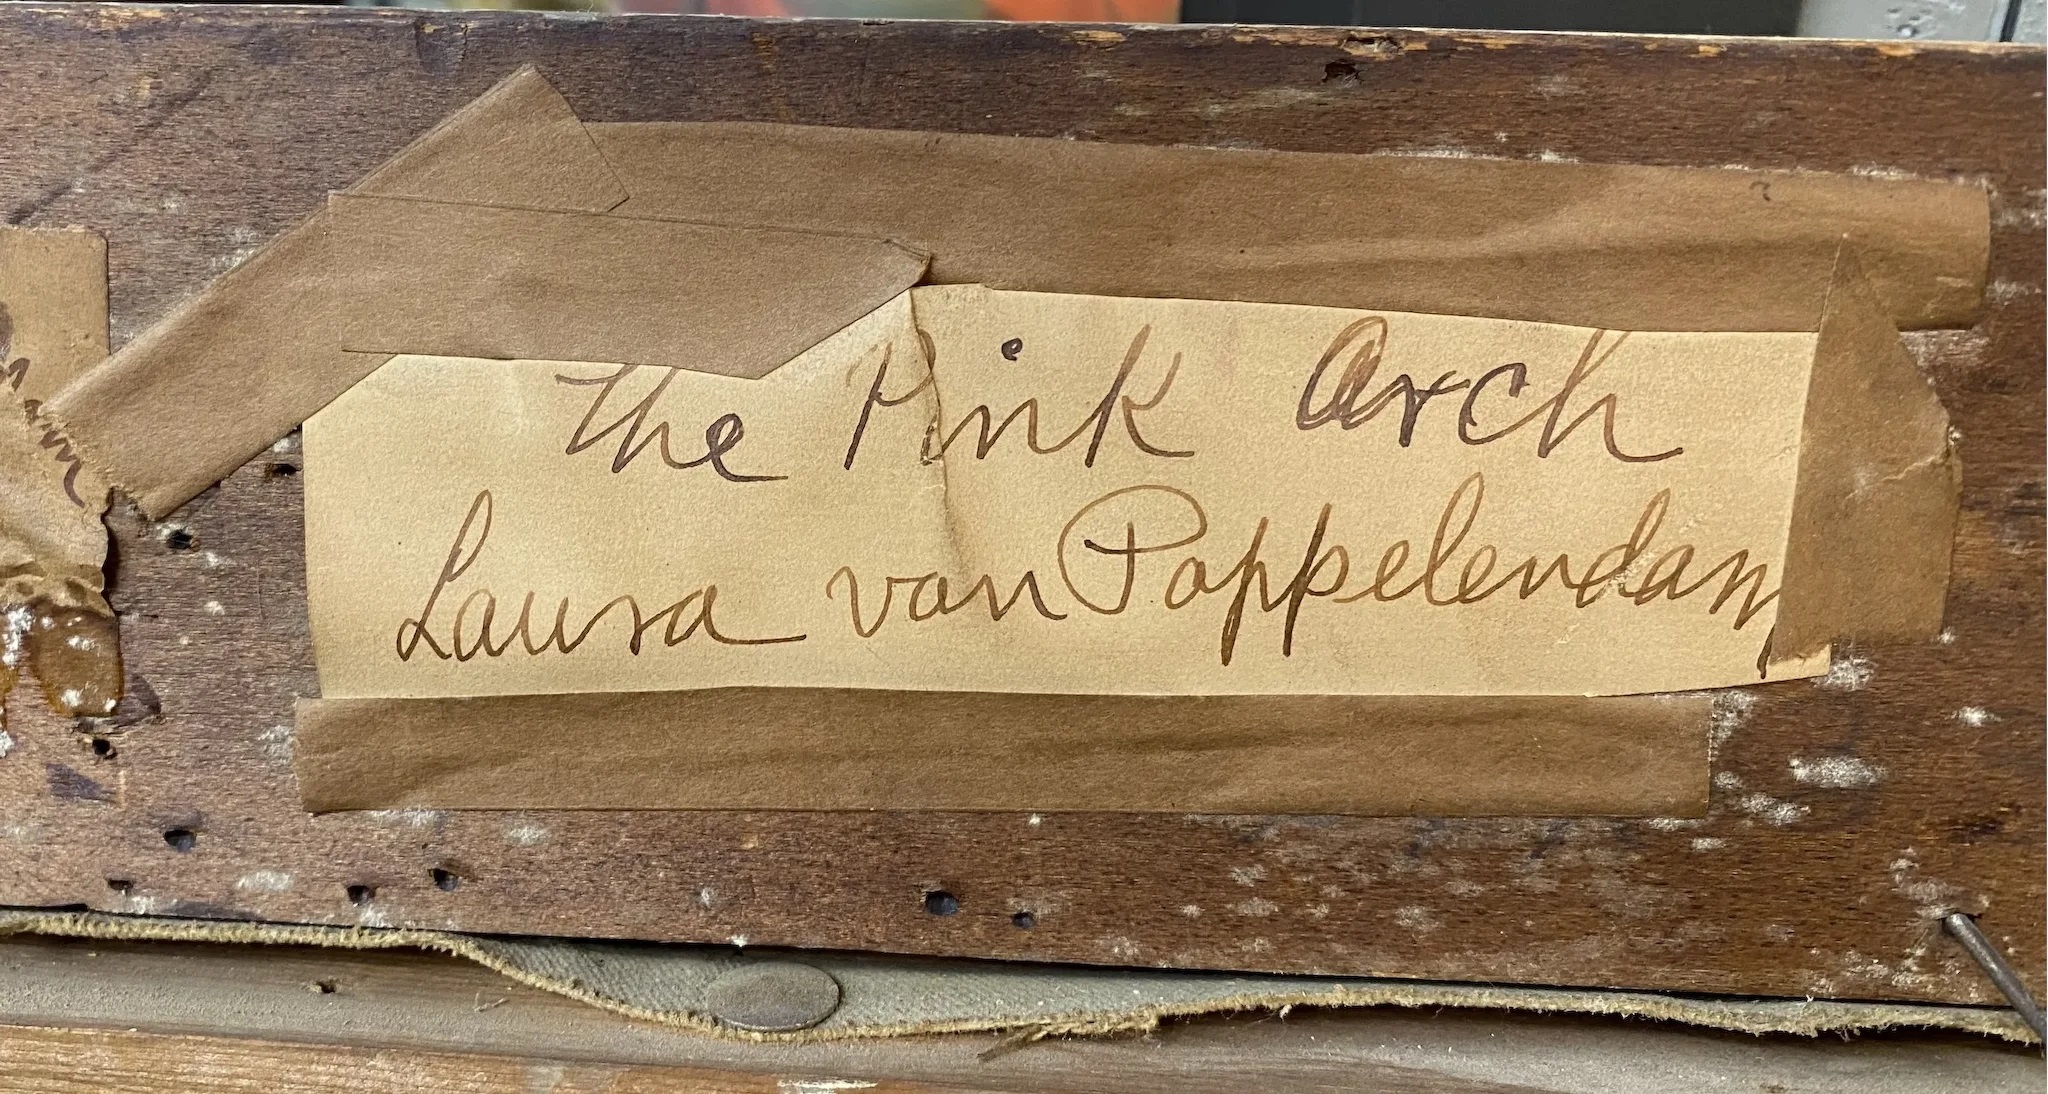 The Pink Arch
Laura van Pappelendam